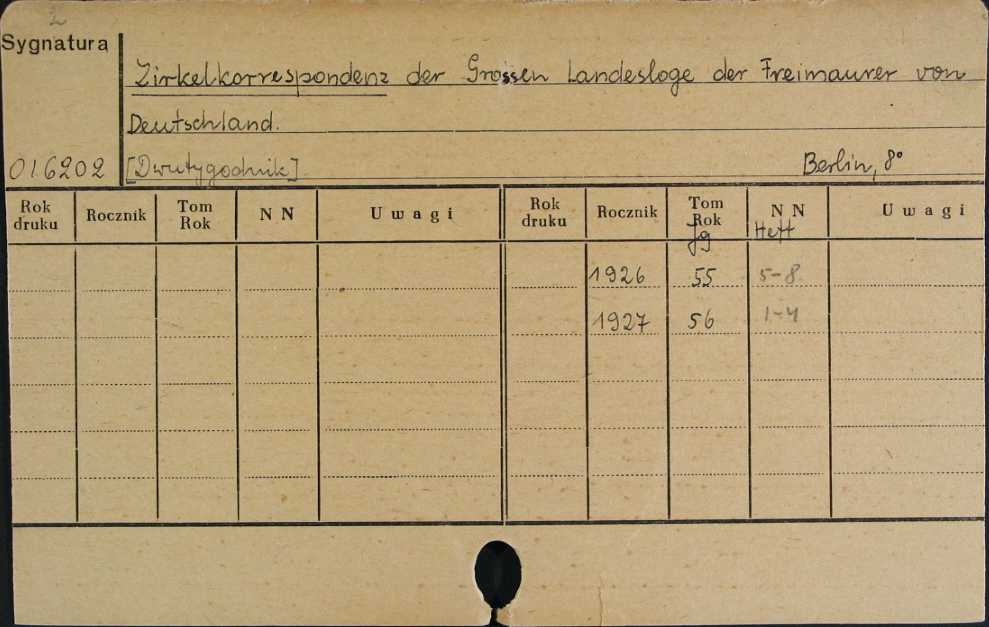 2
Sygnatura
Zirkelkorrespondenz der Grossen Landesloge der Freimaurer von
Deutschland.
016202 [Dwutygodnik] Berlin, 8°
Rok druku Rocznik Tom Rok NN Uwagi Rok druku Rocznik Tom Rok NN Uwagi
Jg Heft
1926 55 5-8
1927 56 1-4